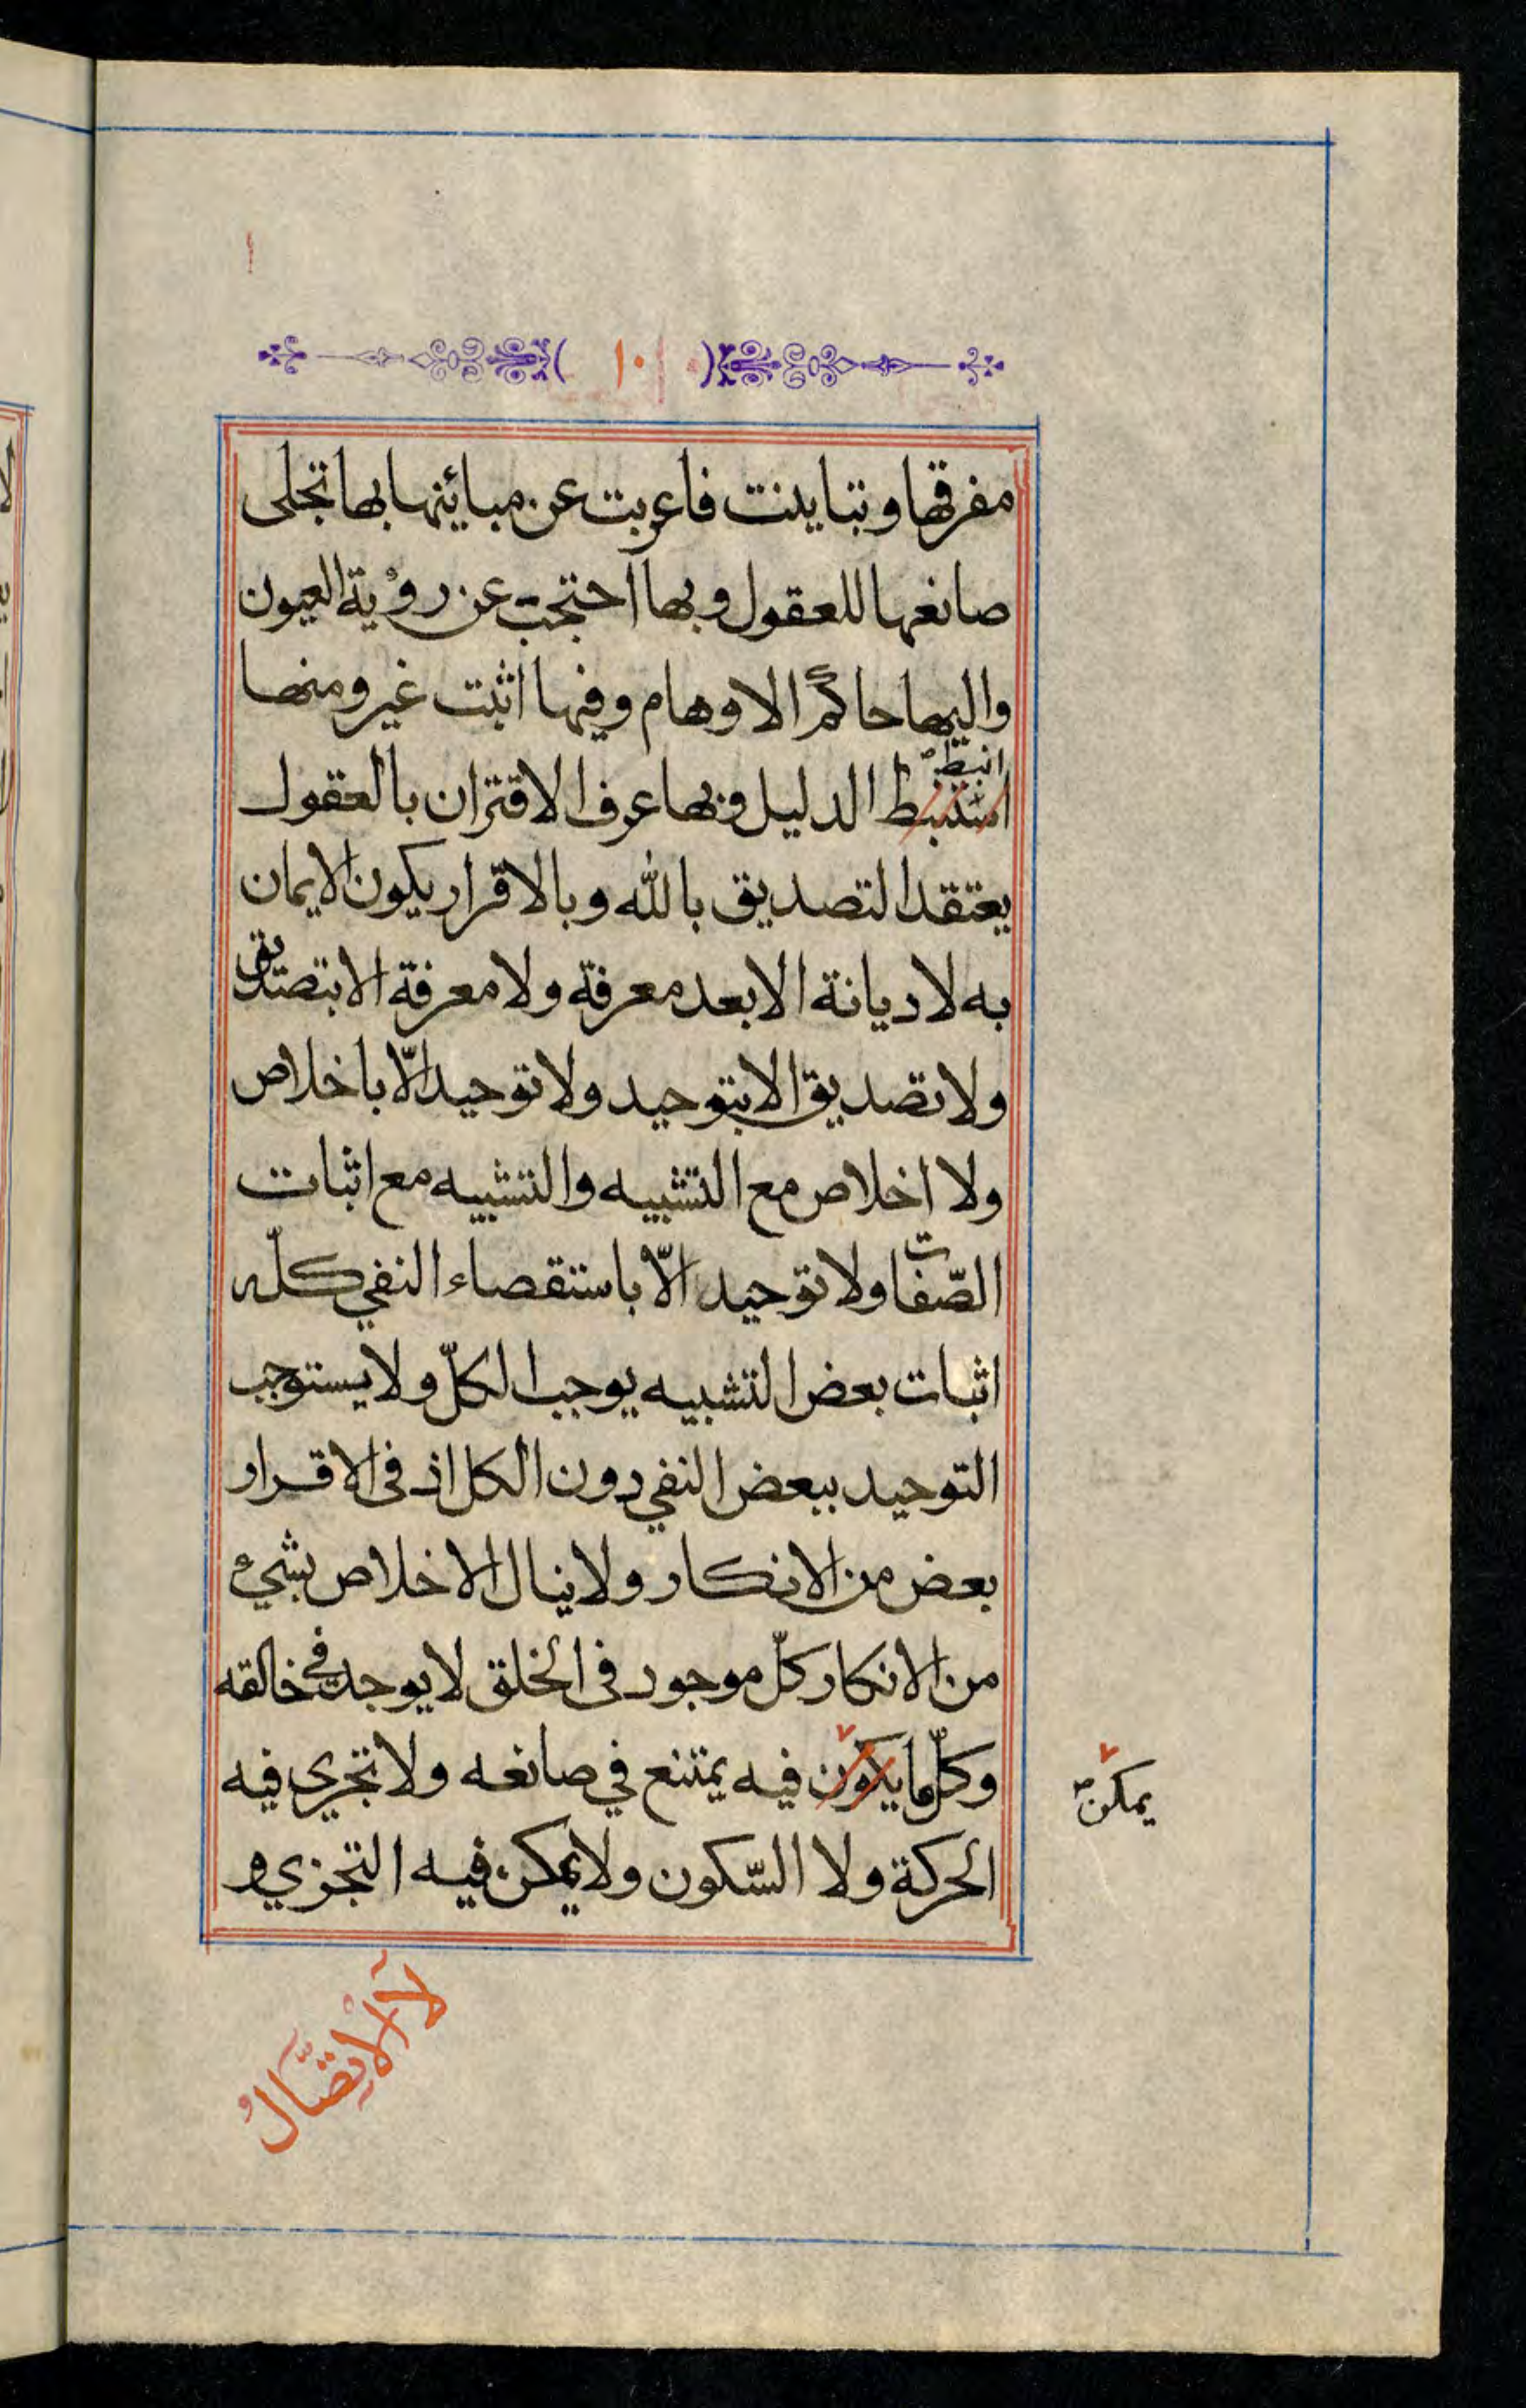 ١٠
مفرقها وتباينت فاعربت عن مبائنها بها تجلى
صانعها للعقول وبها احتجب عن رؤية العيون
واليها حاكم الاوهام وفيها اثبت غير ومنها
انبط
استنبط الدليل وبها عرف الاقتران بالعقول
يعتقد التصديق بالله وبالاقرار يكون الايمان
به لا ديانة الا بعد معرفة ولا معرفة الا بتصديق
ولا تصديق الا بتوحيد ولا توحيد الّا باخلاص
ولا اخلاص مع التشبيه والتشبيه مع اثبات
الصّفات ولا توحيد الّا باستقصاء النفي كلّه
اثبات بعض التشبيه يوجب الكلّ ولا يستوجب
التوحيد ببعض النفي دون الكل اذ في الاقرار
بعض من الانكار ولا ينال الاخلاص بشيء
من الانكار كلّ موجود في الخلق لا يوجد في خالقه
وكلّما يكون فيه يمتنع في صانعه ولا تجرى فيه
يمكن
الحركة ولا السّكون ولا يمكن فيه التجزي و
لا الاتصّالُ